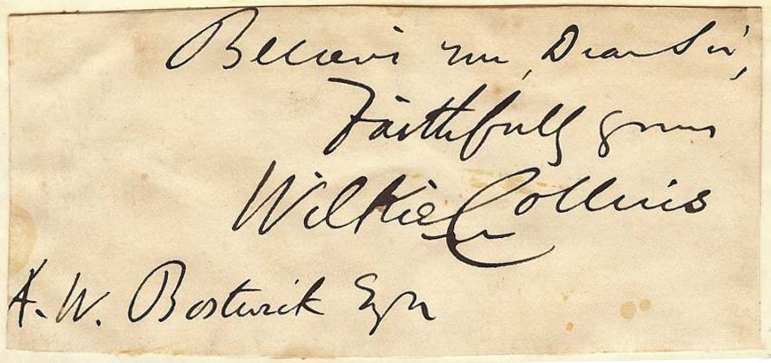 Believe me, Dear Sir,
Faithfully yours
Wilkie Collins
A. W. Bostwick Esqre